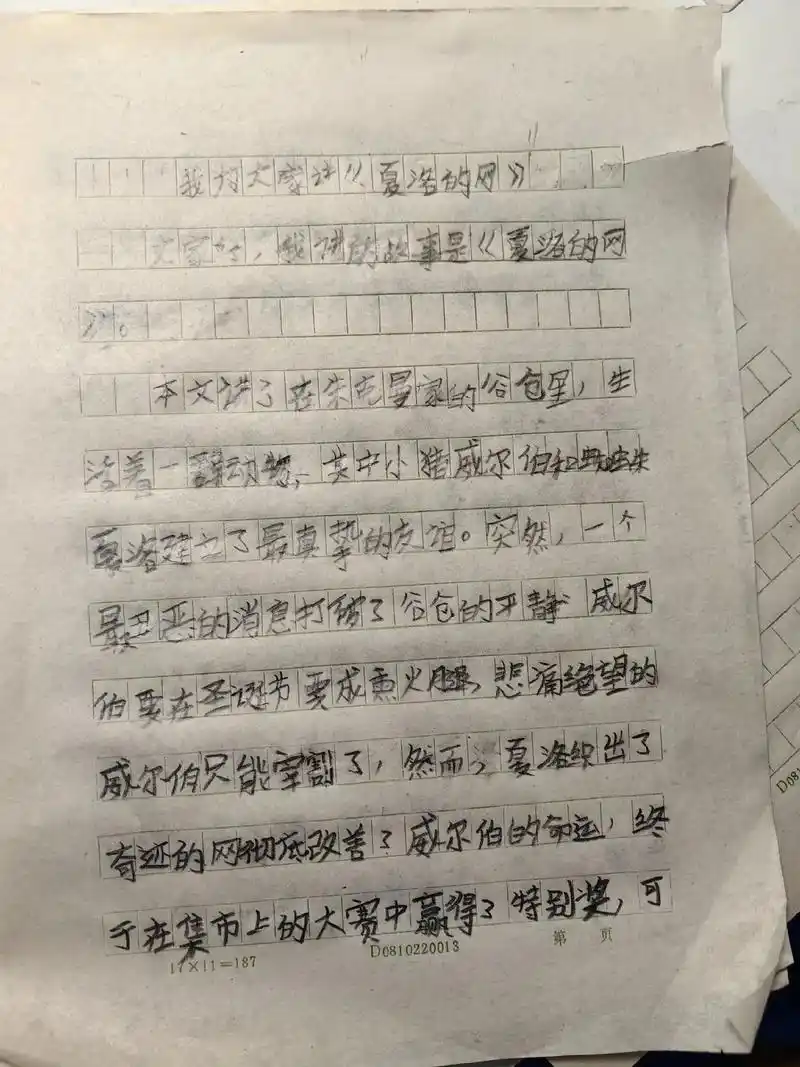 我为大家讲《夏洛的网》
大家好，我讲的故事是《夏洛的网
》。
本文讲了在朱克曼家的谷仓里，生
活着一群动物，其中小猪威尔伯和蜘蛛
夏洛建立了最真挚的友谊。突然，一个
最丑恶的消息打破了谷仓的平静 威尔
伯要在圣诞节变成熏火腿，悲痛绝望的
威尔伯只能宰割了，然而，夏洛织出了
奇迹的网彻底改善了威尔伯的命运，终
于在集市上的大赛中赢得了特别奖，可
17×11=187 D0810220013 第 页
D081